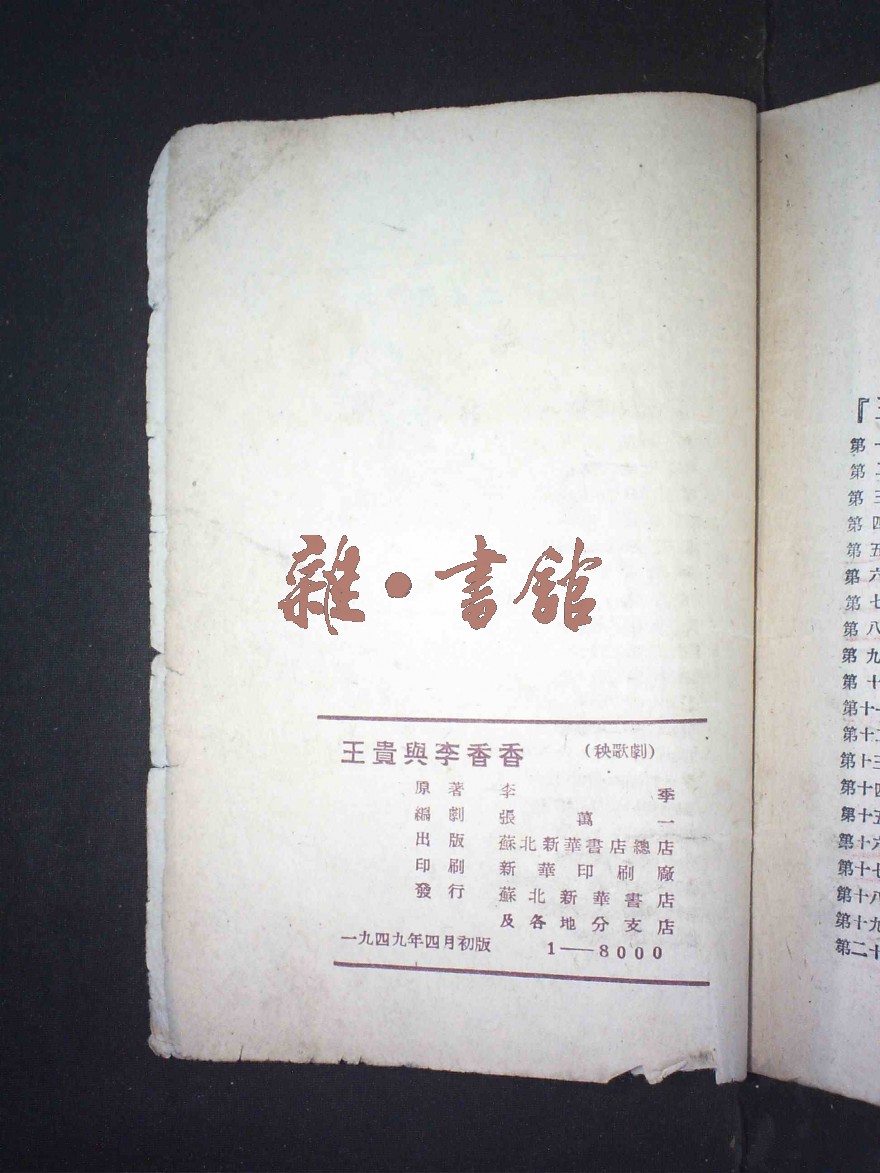 雜·書舘
王貴與李香香 （秧歌劇）
原著 李季
編劇 張萬一
出版 蘇北新華書店總店
印刷 新華印刷廠
發行 蘇北新華書店
及各地分支店
一九四九年四月初版 1——8000
『
第
第
第三
第四
第五
第六
第七
第八
第九
第十
第十一
第十二
第十三
第十四
第十五
第十六
第十七
第十八
第十九
第二十